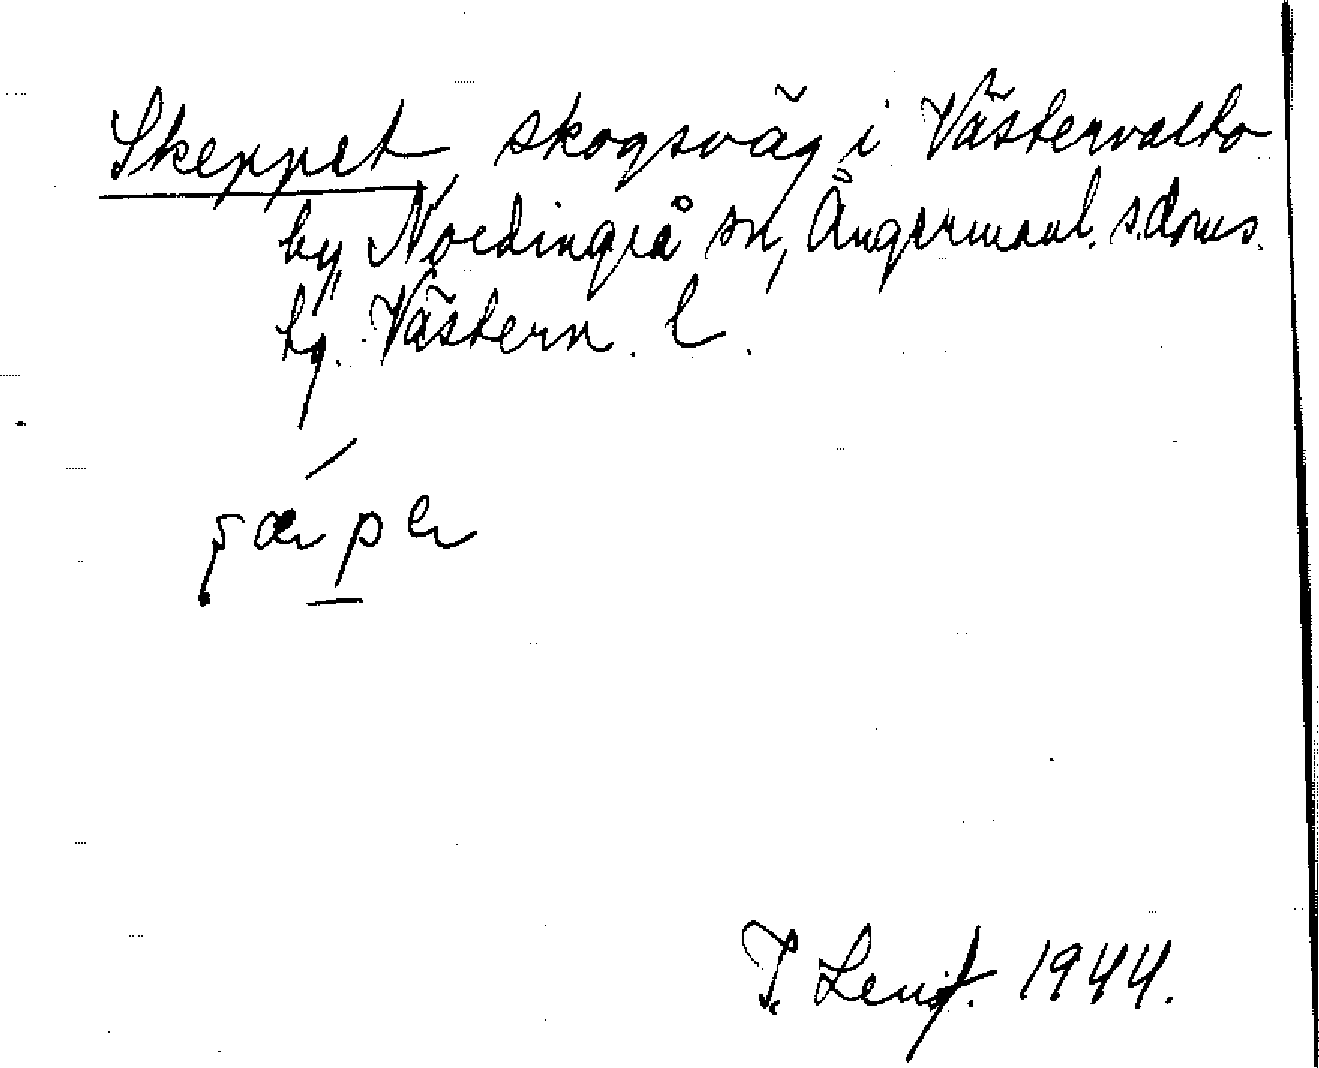 Skeppet, skogsväg i Västervalto
by Nordingrå sn, Ångermanl. s. doms.
hg. Västern. l.
T. Lengt. 1944.